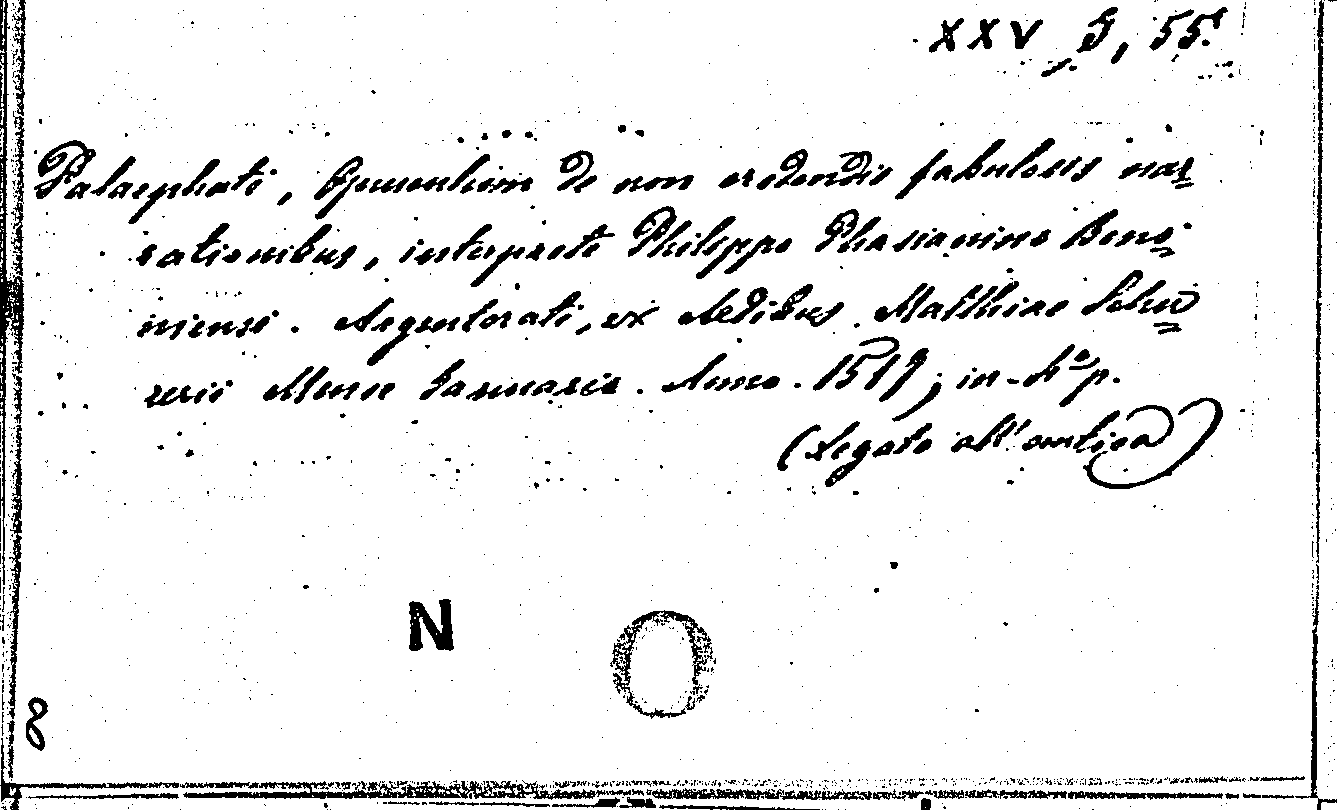 XXV G, 55.
Palaephati, Opusculum de non credendis fabulosis nar=
rationibus, interprete Philippo Phasianino Bono=
niensi. Argentorati, ex Aedibus Matthiae Schu=
rerii Mense Januario. Anno. 1517; in-4º p.
(Legato all'antica)
N
8